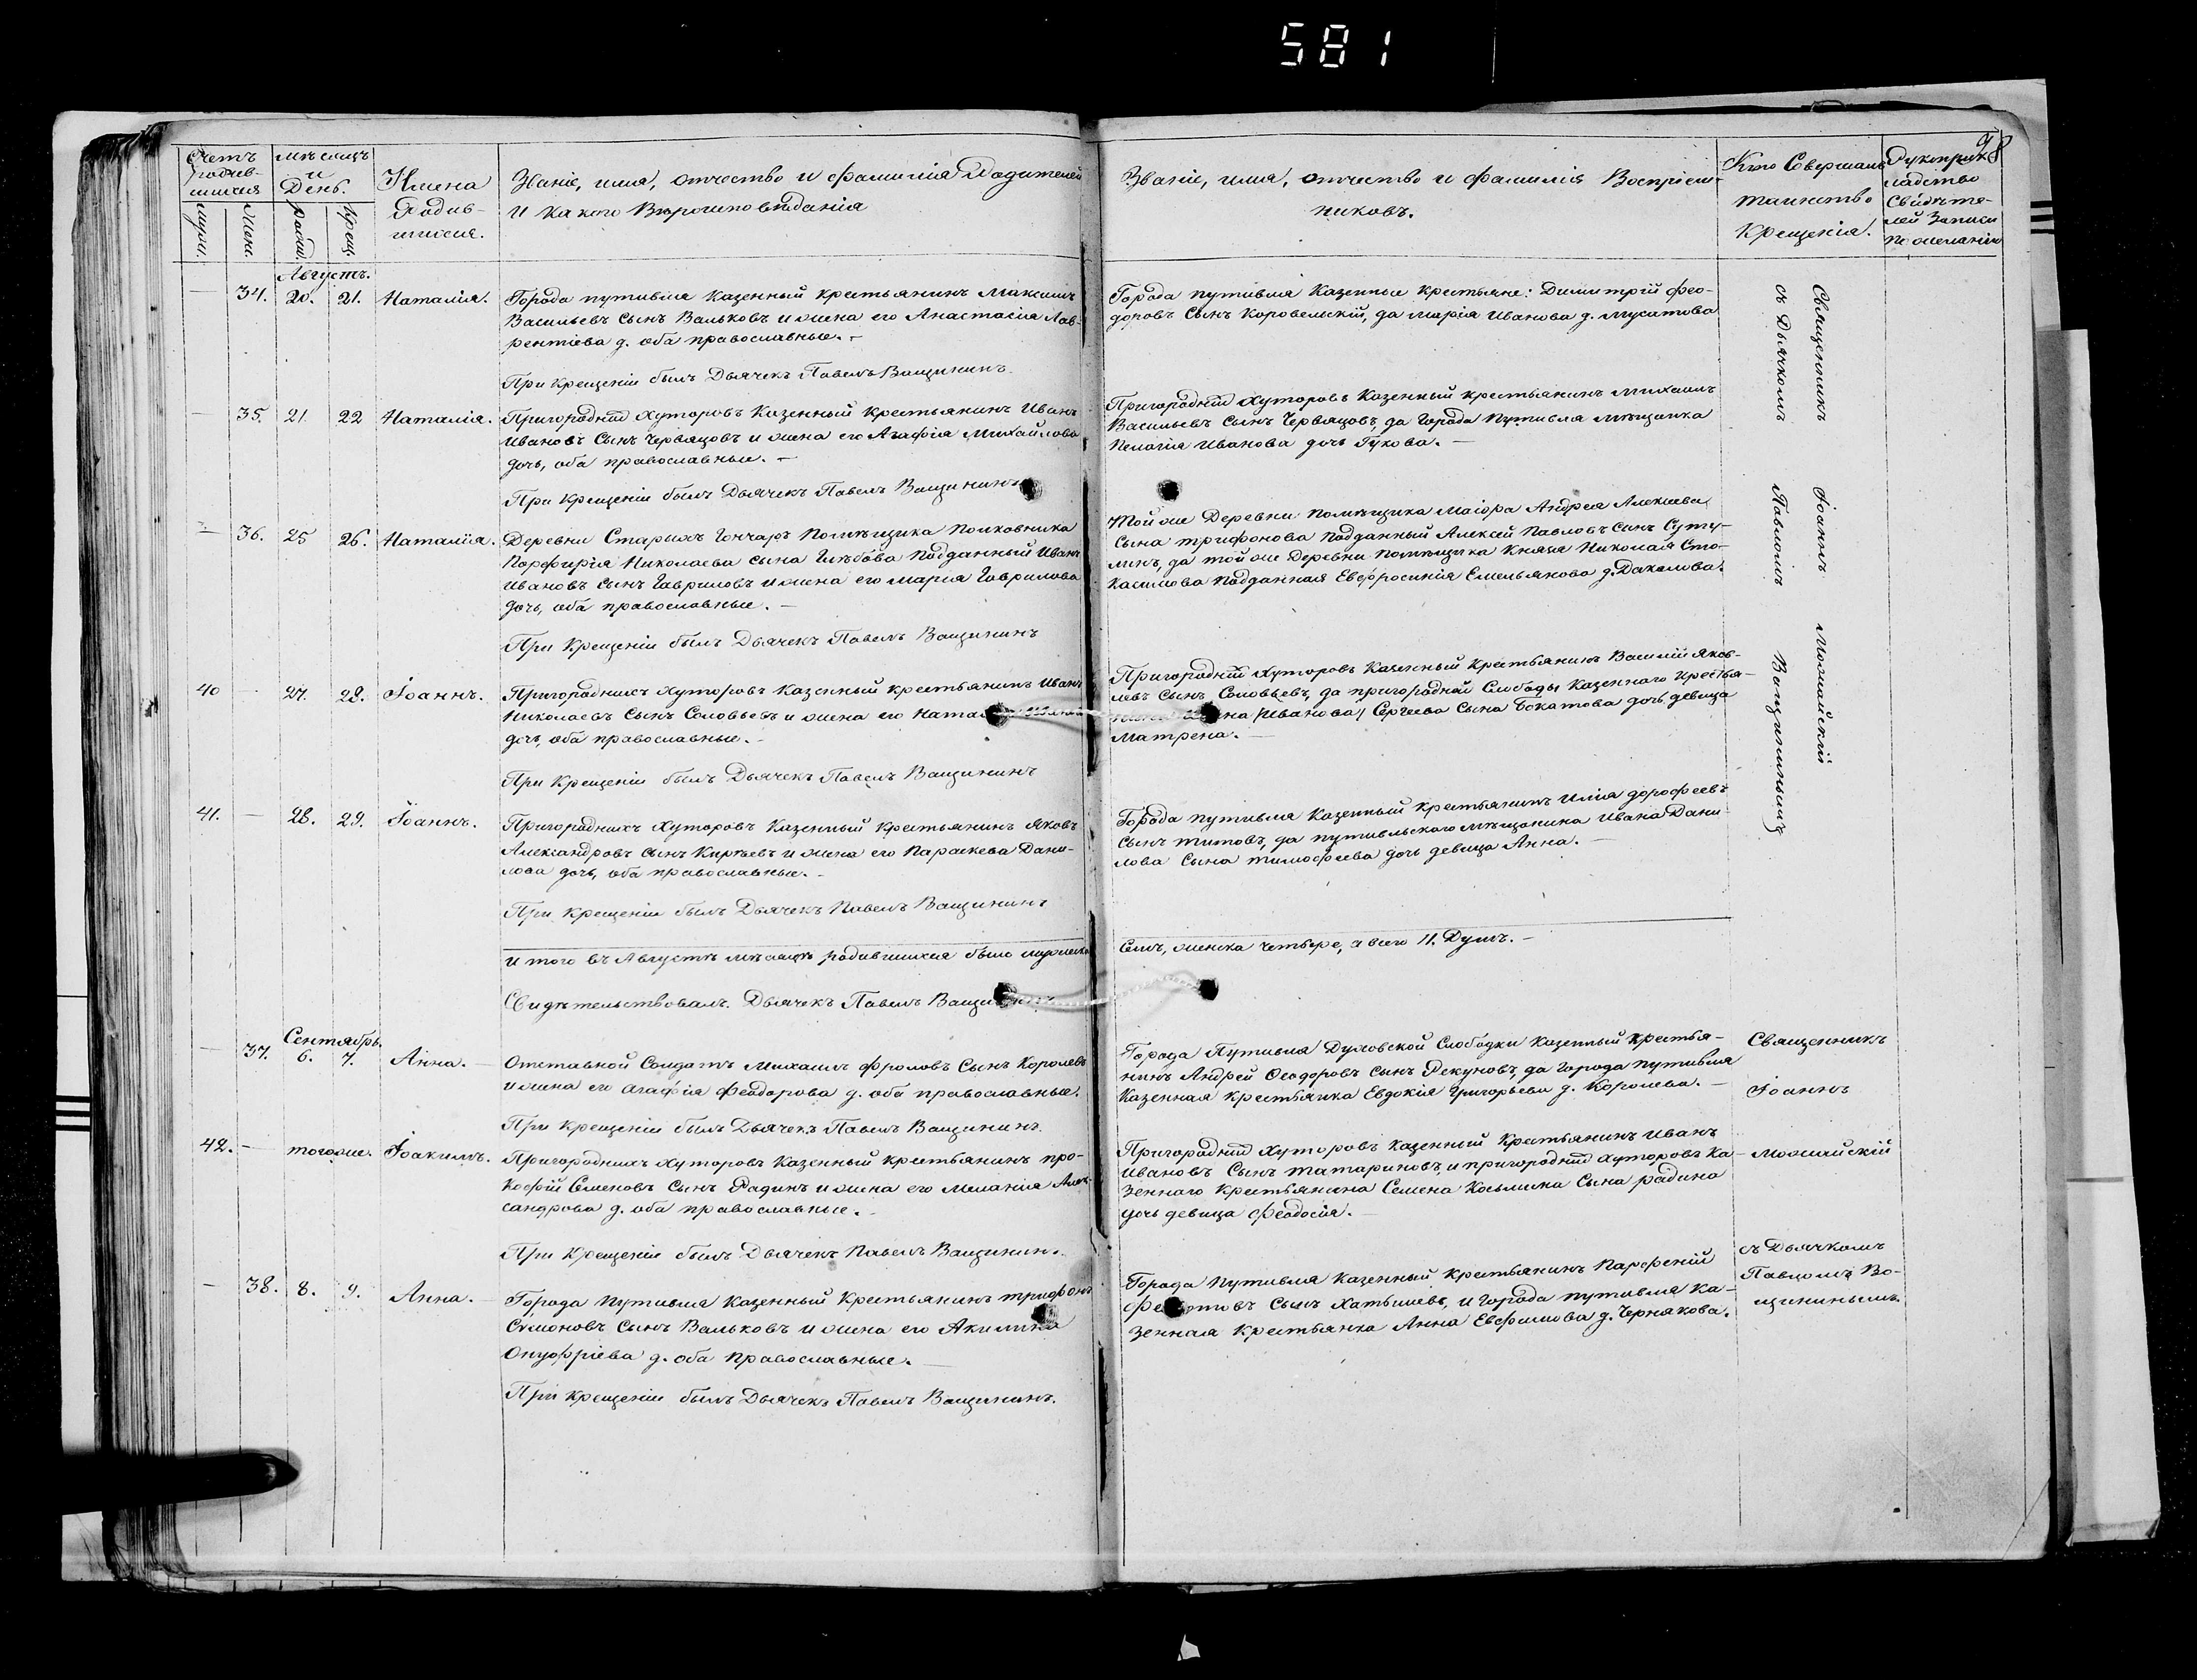 581
98
Счетъ родив-
шихся
мѣсяцъ
и
День.
Муж.
Женс.
Рожд.
Крещ.
Имена
Родив-
шихся.
Званіе, имя, отчество и фамилія Родителей
и какого Вѣроисповѣданія
Званіе, имя, отчество и фамилія Воспріем-
никовъ.
Кто Совершалъ
таинство
Крещенія.
Рукоприк-
ладство
Свидѣте-
лей Записи
по желанію
Августъ.
— 34. 20. 21. Наталія.
Города путивля казенный крестьянинъ Максимъ
Васильевъ Сынъ Вальковъ и жена его Анастасія Лав-
рентіева д. оба православные. —
При Крещеніи былъ Дьячекъ Павелъ Ващининъ
Города путивля Казенные крестьяне: Димитрій Фео-
доровъ Сынъ Коровельскій, да Марія Иванова д. Мусатова
— 35. 21. 22 Наталія.
Пригородныхъ Хуторовъ Казенный крестьянинъ Иванъ
Ивановъ Сынъ Червяцовъ и жена его Агафія Михайлова
дочь, оба православные. —
При Крещеніи былъ Дьячекъ Павелъ Ващининъ
Пригородныхъ Хуторовъ Казенный крестьянинъ Михаилъ
Васильевъ Сынъ Червяцовъ, да Города Путивля мѣщанка
Пелагія Иванова дочь Гукова. —
— 36. 25 26. Наталія.
Деревни Старыхъ Гончаръ Помѣщика Полковника
Порфирія Николаева сына Глѣбова Подданный Иванъ
Ивановъ Сынъ Гавриловъ и жена его Марія Гаврилова
дочь, оба православные. —
При Крещеніи былъ Дьячекъ Павелъ Ващининъ
Той же Деревни помѣщика Маіора Андрея Алексѣева
Сына Трифонова Подданный Алексѣй Павловъ Сынъ Суту-
линъ, да той же Деревни помѣщика Князя Николая Сто-
касимова Подданная Евфросинія Емельянова д. Дакалова.
40 — 27. 28. Іоаннъ.
Пригородныхъ Хуторовъ Казенный крестьянинъ Иванъ
Николаевъ Сынъ Соловьевъ и жена его
дочь, оба православные. —
При Крещеніи былъ Дьячекъ Павелъ Ващининъ
Пригородныхъ Хуторовъ Казенный крестьянинъ Василій Яков-
левъ Сынъ Соловьевъ, да пригородной Слободы Казенного крестья-
/Иванова/ Сергѣева Сына Бокатова дочь девица
Матрена. —
41. — 28. 29. Іоаннъ.
Пригородныхъ Хуторовъ Казенный Крестьянинъ Яковъ
Александровъ Сынъ Кирѣевъ и жена его Параскева Дани-
лова дочь, оба православные. —
При Крещеніи былъ Дьячекъ Павелъ Ващининъ
Города путивля Казенный крестьянинъ Илія Дорофеевъ
Сынъ Титовъ, да путивльскаго мѣщанина Ивана Дани-
лова Сына Тимофеева дочь девица Анна. —
Священникъ Іоаннъ Можайскій
съ Дьячкомъ Павломъ Ващининымъ
И того въ Августѣ мѣсяцѣ родившихся было мужеска
Семь, женска четыре, а всего 11. Душъ. —
Свидѣтельствовалъ Дьячекъ Павелъ Ващининъ
Сентябрь.
— 37. 6. 7. Анна. —
Отставной Солдатъ Михаилъ Фроловъ Сынъ Королевъ
и жена его Агафія Феодорова д. оба православные.
При Крещеніи былъ Дьячекъ Павелъ Ващининъ.
Города Путивля Духовской Слободки Казенный крестья-
нинъ Андрей Феодоровъ Сынъ Рекуновъ, да Города путивля
Казенная крестьянка Евдокія Григорьева д. Королева. —
Священникъ
Іоаннъ
Можайскій
съ Дьячкомъ
Павломъ Ва-
щининымъ.
42. — тогоже. Іоакимъ.
Пригородныхъ Хуторовъ Казенный крестьянинъ про-
кофій Семеновъ Сынъ Радинъ и жена его Меланія Алек-
сандрова д. оба православные. —
При Крещеніи былъ Дьячекъ Павелъ Ващининъ.
Пригородныхъ Хуторовъ Казенный Крестьянинъ Иванъ
Ивановъ Сынъ Татариновъ, и пригородныхъ Хуторовъ Ка-
зеннаго Крестьянина Семена Козьмина Сына радина
дочь девица Феодосія. —
— 38. 8. 9. Анна. —
Города Путивля Казенный Крестьянинъ Трифонъ
Симоновъ Сынъ Вальковъ и жена его Акилина
Онуфріева д. оба Православные. —
При Крещеніи былъ Дьячекъ Павелъ Ващининъ.
Города Путивля Казенный Крестьянинъ Парфеній
Сынъ Хатышевъ, и Города путивля Ка-
зенная Крестьянка Анна Евфимова д. Чернякова.